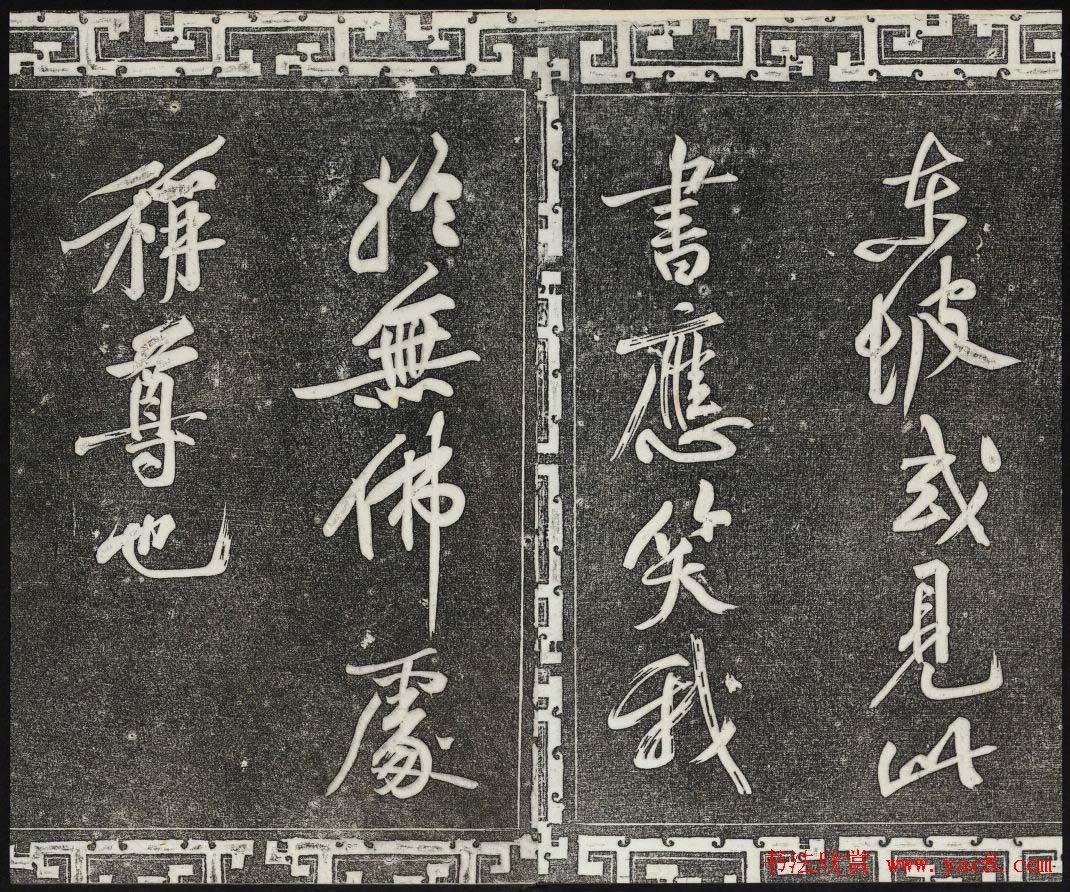 東坡或見此
書應笑我
於無佛處
稱尊也
书法欣赏 www.yac8.com